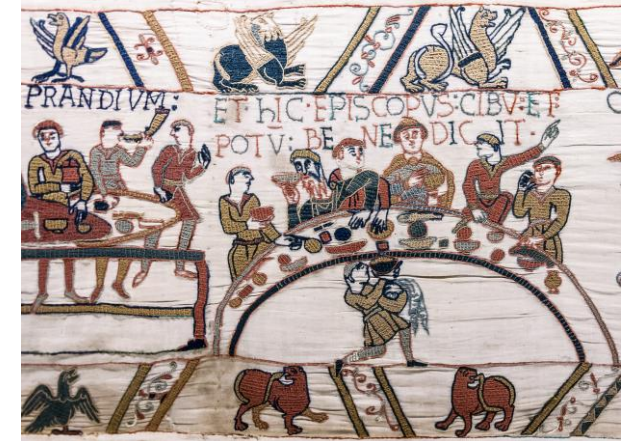 PRANDIVM:
ET·hIC·EPISCOPVS:CIBV̄:ET
POTV̄: BE NE DIC IT·